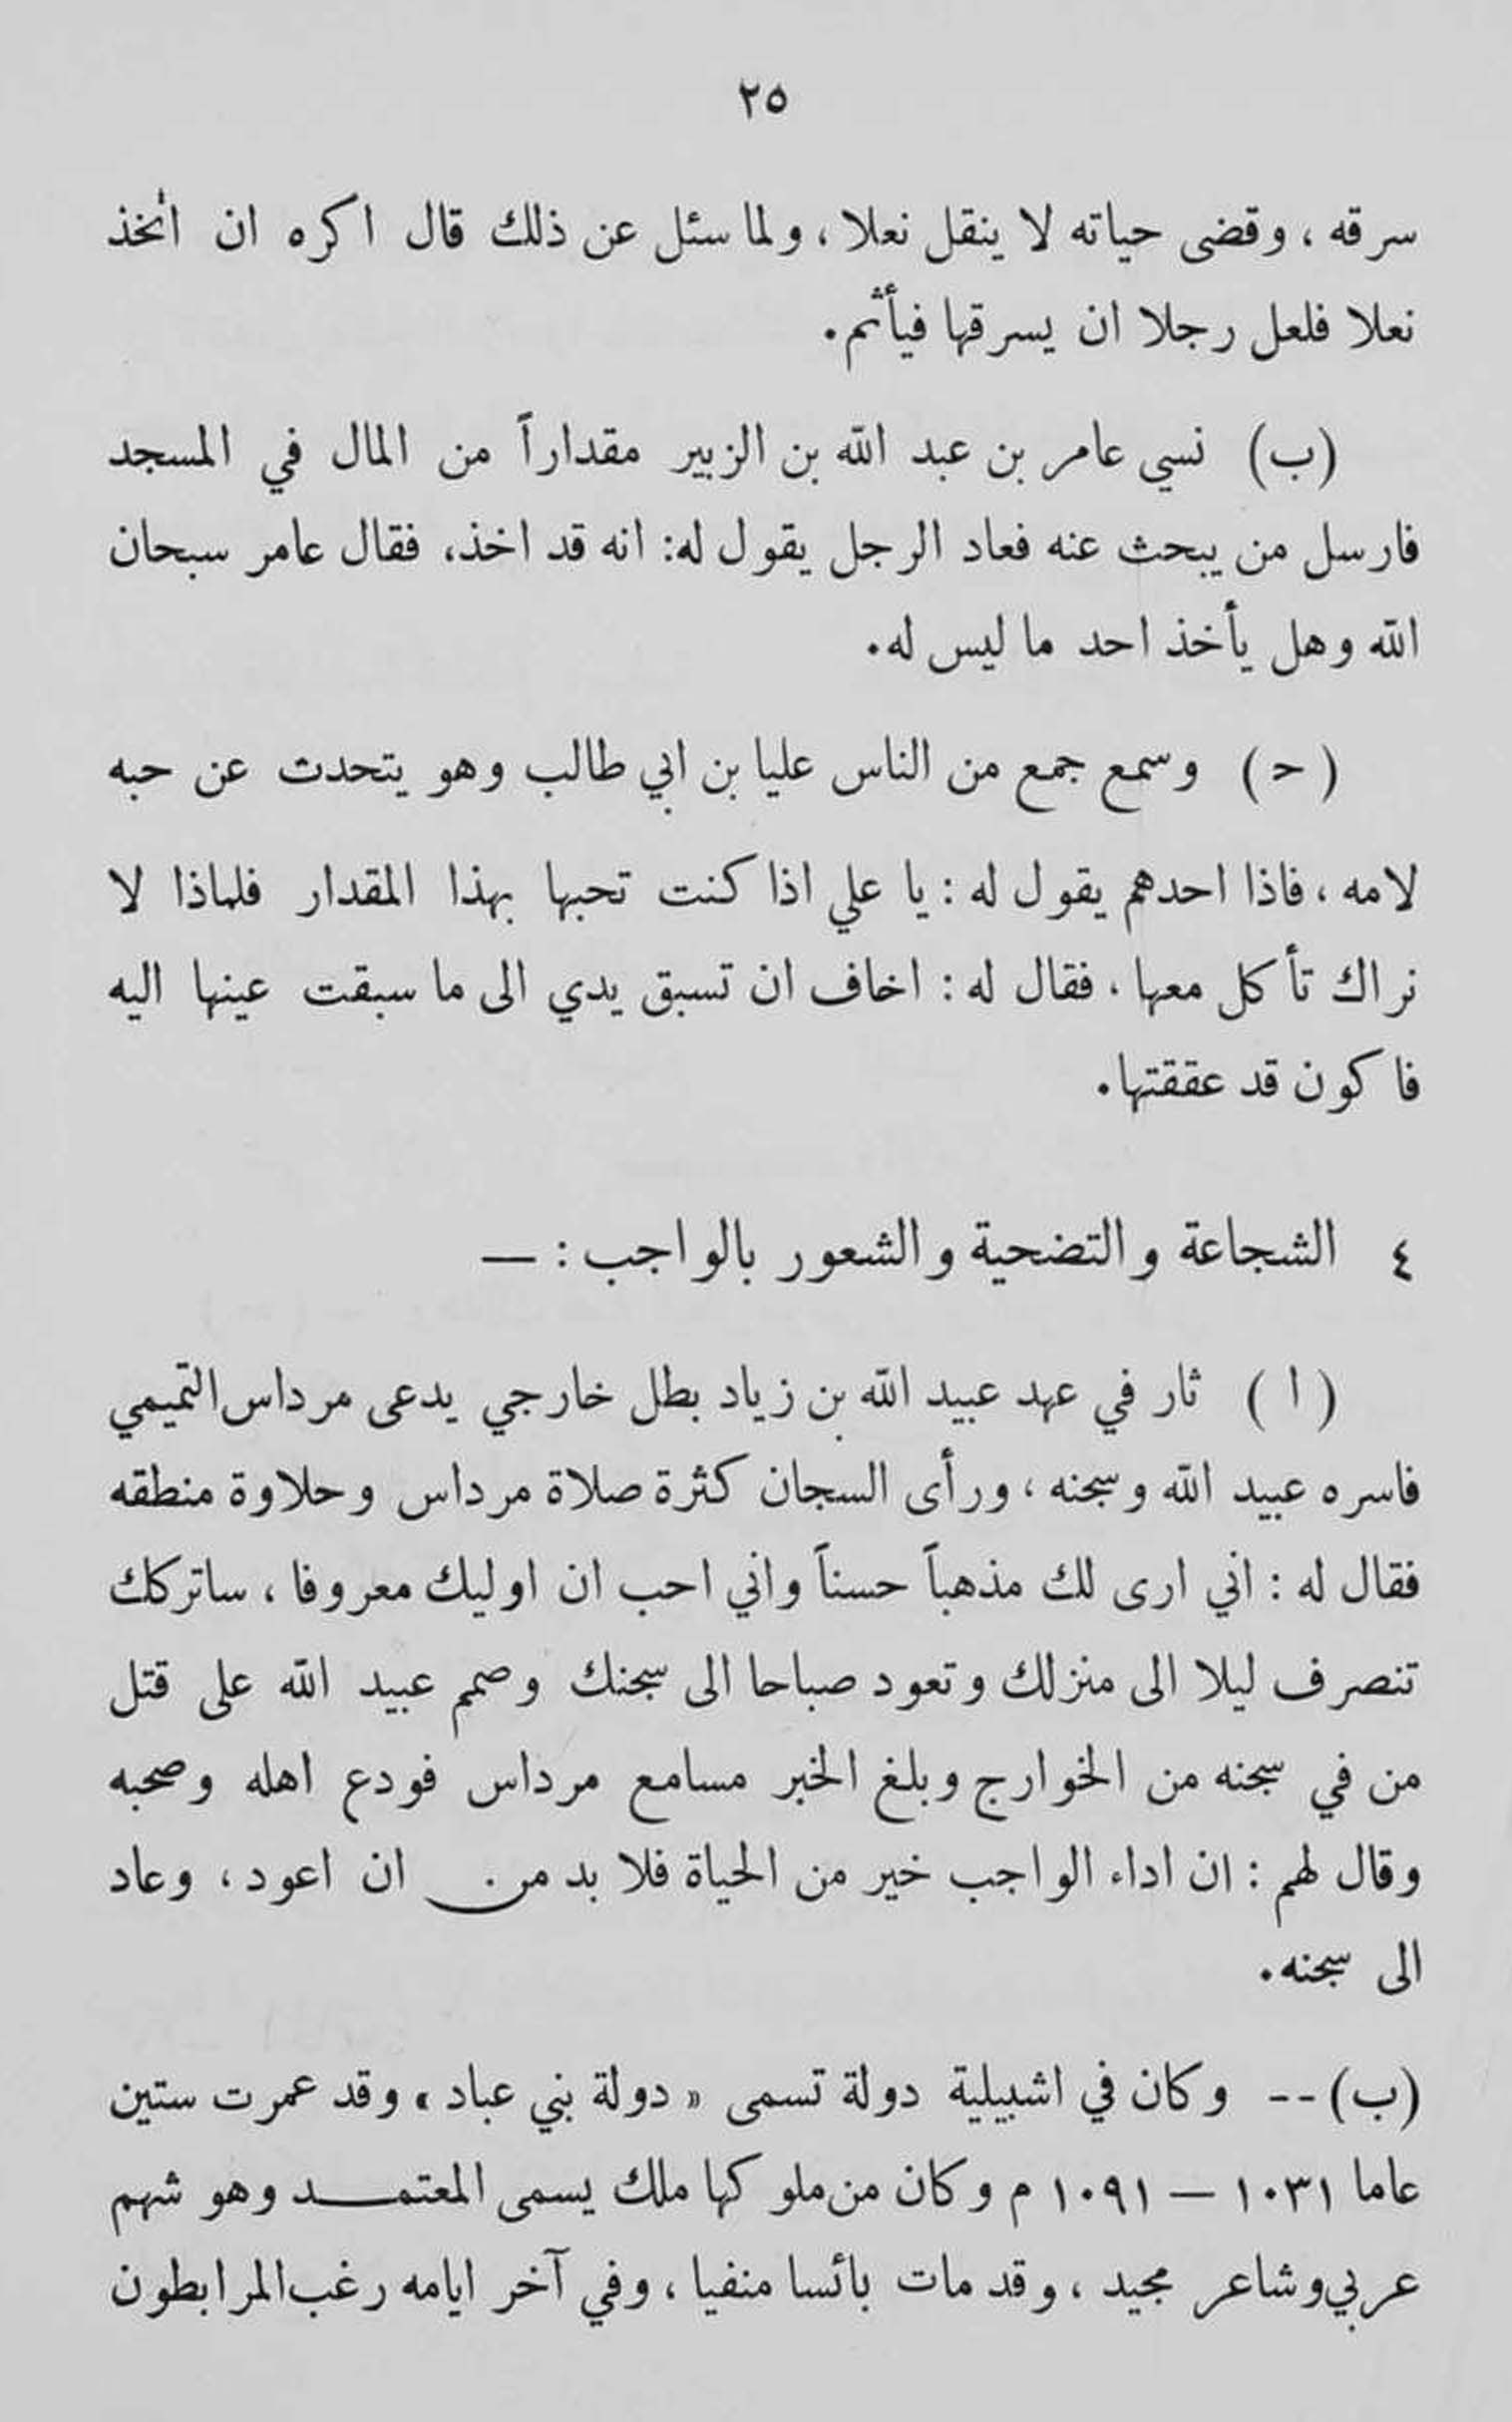 ٢٥
سرقه ، وقضى حياته لا ينقل نعلا ، ولما سئل عن ذلك قال اكره ان اتخذ
نعلا فلعل رجلا ان يسرقها فيأثم.
(ب) نسي عامر بن عبد الله بن الزبير مقداراً من المال في المسجد
فارسل من يبحث عنه فعاد الرجل يقول له: انه قد اخذ، فقال عامر سبحان
الله وهل يأخذ احد ما ليس له.
(ح) وسمع جمع من الناس عليا بن ابي طالب وهو يتحدث عن حبه
لامه ، فاذا احدهم يقول له : يا علي اذا كنت تحبها بهذا المقدار فلماذا لا
نراك تأكل معها . فقال له : اخاف ان تسبق يدي الى ما سبقت عينها اليه
فاكون قد عققتها.
٤ الشجاعة والتضحية والشعور بالواجب : —
(ا) ثار في عهد عبيد الله بن زياد بطل خارجي يدعى مرداس التميمي
فاسره عبيد الله وسجنه ، ورأى السجان كثرة صلاة مرداس وحلاوة منطقه
فقال له : اني ارى لك مذهباً حسناً واني احب ان اوليك معروفا ، ساتركك
تنصرف ليلا الى منزلك وتعود صباحا الى سجنك وصمم عبيد الله على قتل
من في سجنه من الخوارج وبلغ الخبر مسامع مرداس فودع اهله وصحبه
وقال لهم : ان اداء الواجب خير من الحياة فلا بد من ان اعود ، وعاد
الى سجنه.
(ب) -- وكان في اشبيلية دولة تسمى « دولة بني عباد » وقد عمرت ستين
عاما ١٠٣١ — ١٠٩١ م وكان من ملوكها ملك يسمى المعتمـــد وهو شهم
عربي وشاعر مجيد ، وقد مات بائسا منفيا ، وفي آخر ايامه رغب المرابطون